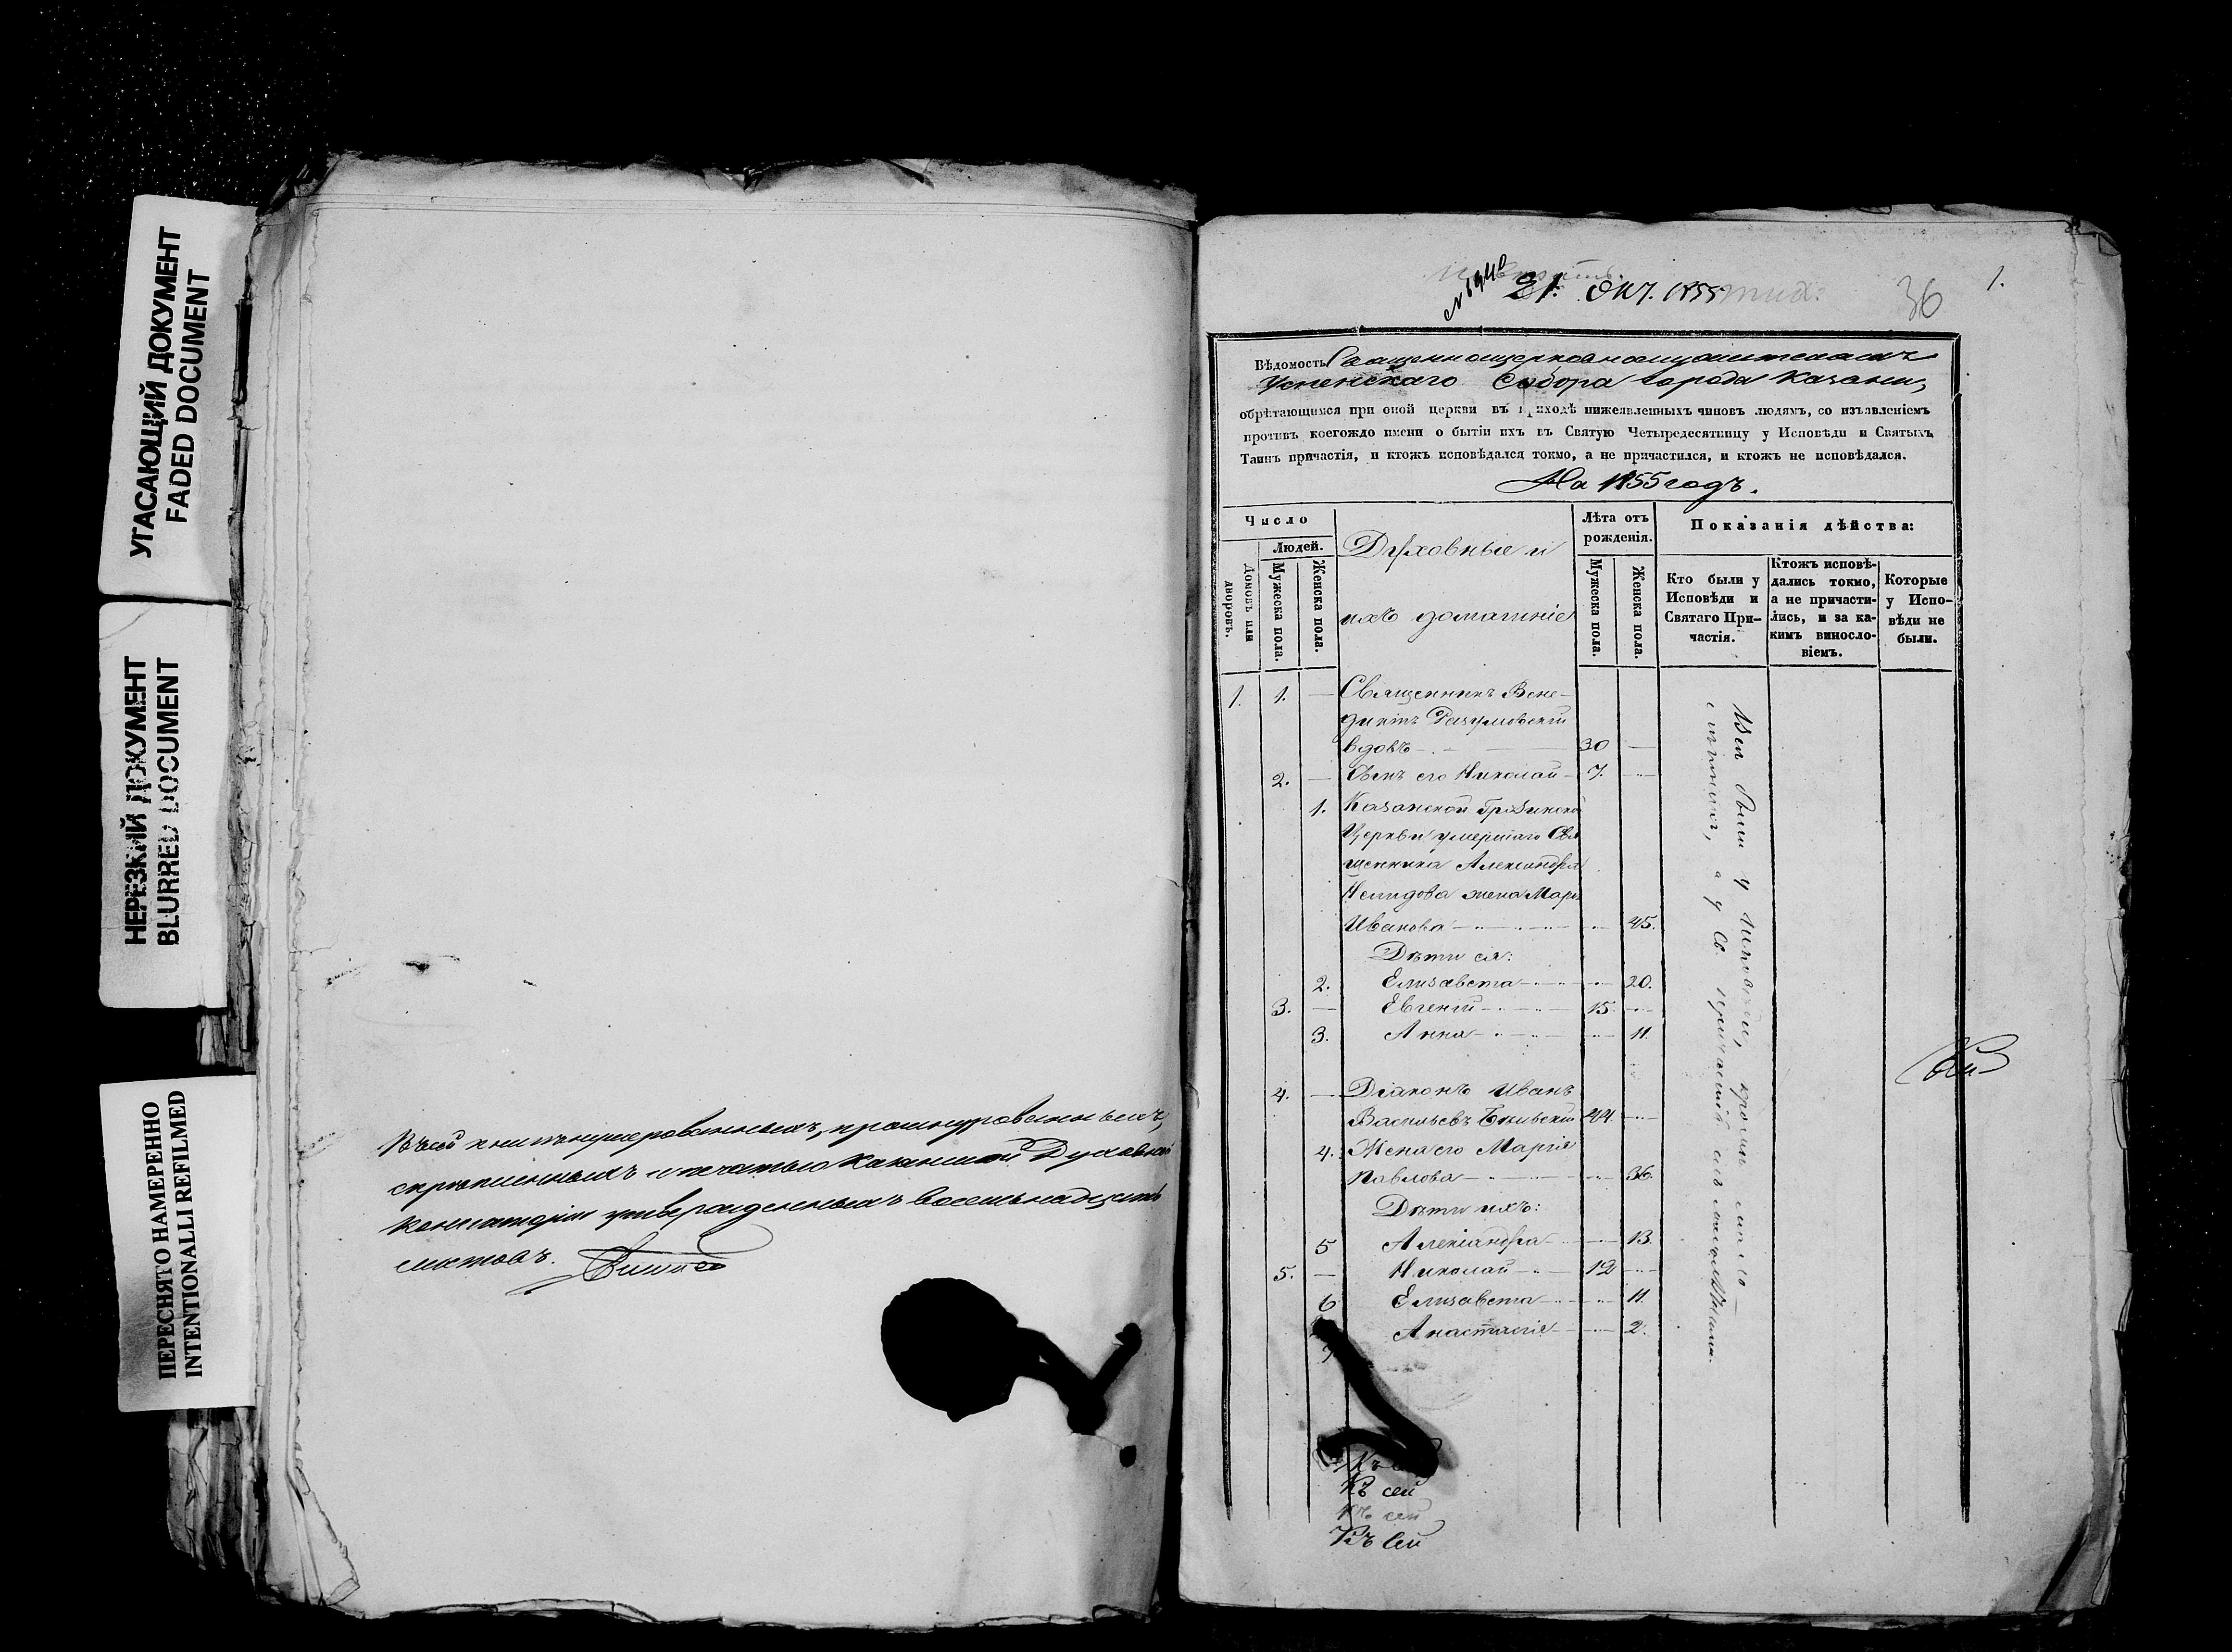 УГАСАЮЩИЙ ДОКУМЕНТ
FADED DOCUMENT
НЕРЕЗКИЙ ДОКУМЕНТ
BLURRED DOCUMENT
ПЕРЕСНЯТО НАМЕРЕННО
INTENTIONALLI REFILMED
Въ сей книгѣ нумерованныхъ, прошнурованныхъ,
скрѣпленныхъ и печатью Казанской Духовной
Консисторіи утвержденныхъ восемьнадцать
листовъ.
21. Окт. 1855
36
1.
Вѣдомость Священноцерковнослужителямъ
Успенскаго Собора города Казани,
обрѣтающимся при оной церкви въ приходѣ нижеявленныхъ чиновъ людямъ, со изъявленіемъ
противъ коегождо имени о бытіи ихъ въ Святую Четыредесятницу у Исповѣди и Святыхъ
Таинъ причастія, и ктожъ исповѣдался токмо, а не причастился, и ктожъ не исповѣдался.
На 1855 годъ.
Число
Домовъ или дворовъ.
Людей.
Мужеска пола.
Женска пола.
Духовные и
ихъ домашніе
Лѣта отъ рожденія.
Мужеска пола.
Женска пола.
Показанія дѣйства:
Кто были у Исповѣди и Святаго При-частія.
Ктожъ исповѣ-дались токмо, а не причасти-лись, и за ка-кимъ винсло-віемъ.
Которые у Испо-вѣди не были.
1. 1. — Священникъ Вене-
диктъ Разумовскій
вдовъ — 30 —
2. — Сынъ его Николай — 7. —
1. Казанской Грузинской
Церкви умершаго Свя
щенника Александра
Нелидова жена Марья
Иванова — 45.
Дѣти ея:
2. Елизавета — 20.
3. — Евгеній — 15. —
3. Анна — 11.
4. — Діаконъ Иванъ
Васильевъ Бѣльскій 44. —
4. Жена его Марія
Павлова — 36.
Дѣти ихъ:
5 Александра — 13.
5. — Николай — 12 —
6 Елизавета — 11.
7 Анастасія — 2.
Всѣ были у исповѣди, кромѣ
а у Св. причастія
Къ сей
Къ сей
Къ сей